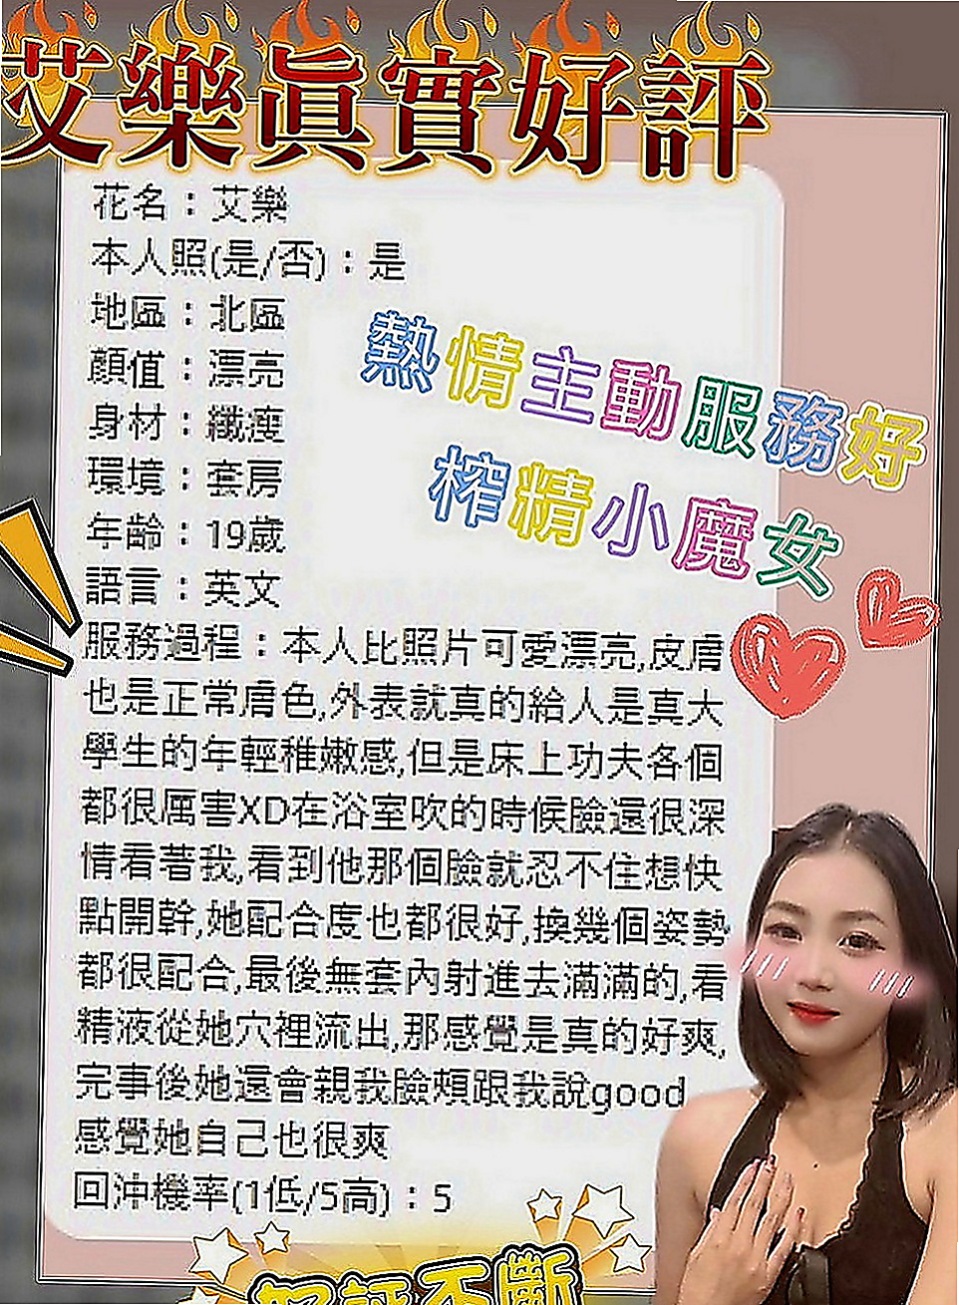 艾樂眞實好評
花名：艾樂
本人照(是/否)：是
地區：北區
顏值：漂亮
身材：纖瘦
環境：套房
年齡：19歲
語言：英文
熱情主動服務好
榨精小魔女
服務過程：本人比照片可愛漂亮,皮膚
也是正常膚色,外表就真的給人是真大
學生的年輕稚嫩感,但是床上功夫各個
都很厲害XD在浴室吹的時候臉還很深
情看著我,看到他那個臉就忍不住想快
點開幹,她配合度也都很好,換幾個姿勢
都很配合,最後無套內射進去滿滿的,看
精液從她穴裡流出,那感覺是真的好爽,
完事後她還會親我臉頰跟我說good
感覺她自己也很爽
回沖機率(1低/5高)：5
好評不斷